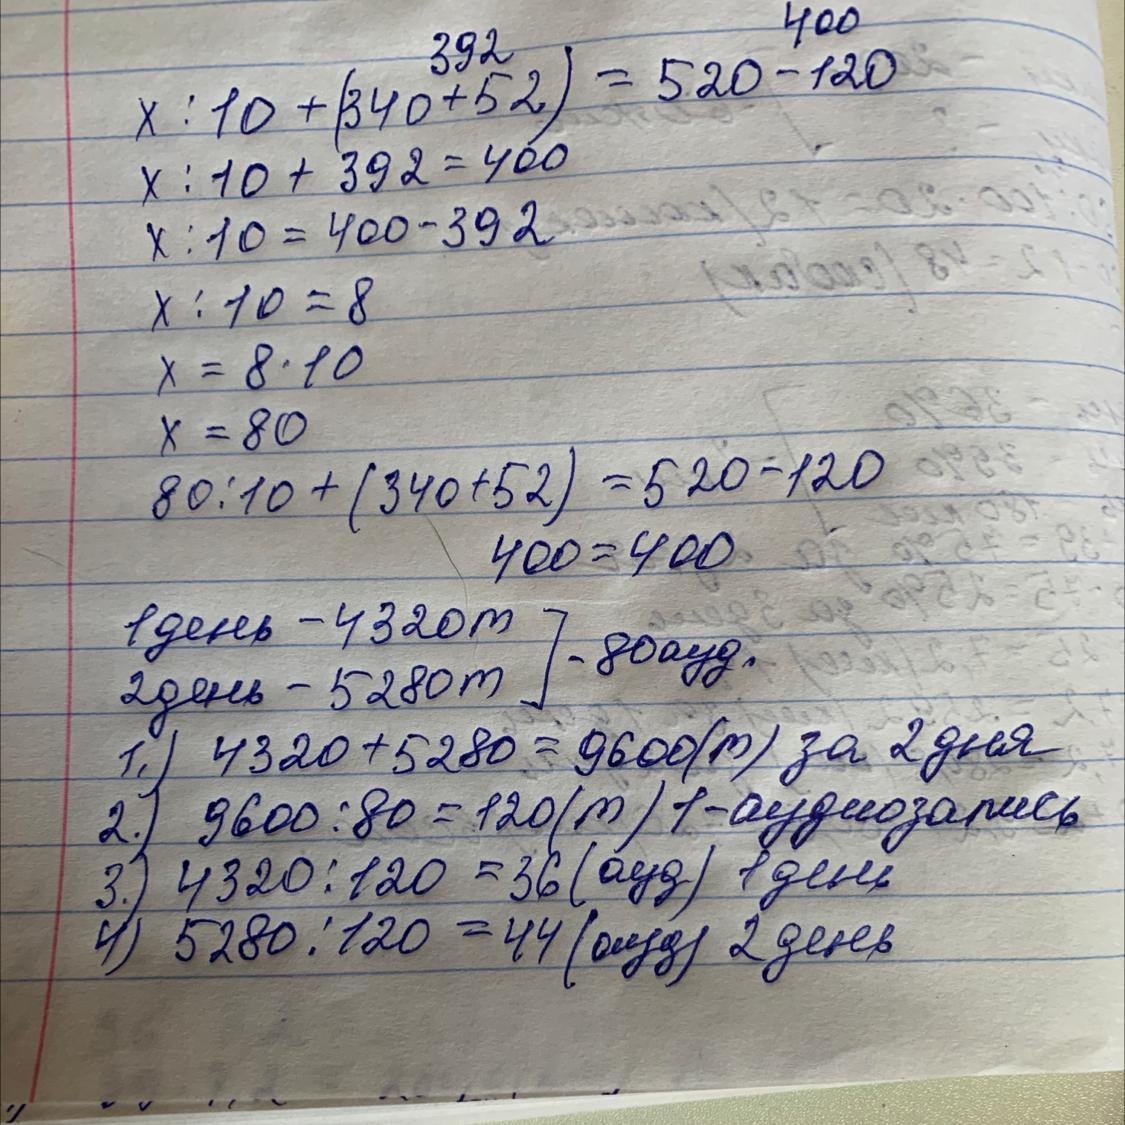 392 400
x : 10 + (340 + 52) = 520 - 120
x : 10 + 392 = 400
x : 10 = 400 - 392
x : 10 = 8
x = 8 · 10
x = 80
80 : 10 + (340 + 52) = 520 - 120
400 = 400
1 день - 4320 т
2 день - 5280 т ] - 80 ауд.
1.) 4320 + 5280 = 9600 (т) за 2 дня
2.) 9600 : 80 = 120 (т) 1 - аудиозапись
3.) 4320 : 120 = 36 (ауд) 1 день
4) 5280 : 120 = 44 (ауд) 2 день